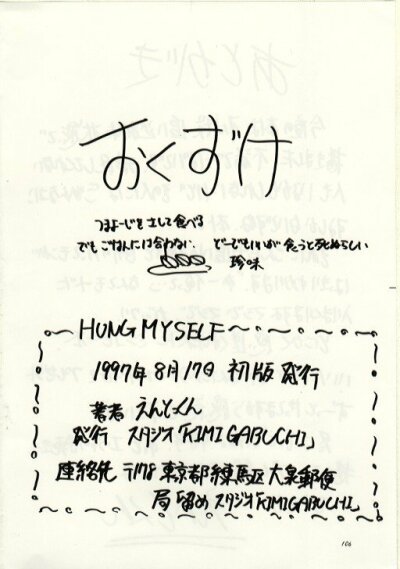 おくずけ
つまよーじを立して食べる
でもごはんには合わない
どーでもいいが 食うと死ぬらしい
珍味
HUNG MYSELF
1997年8月17日 初版 発行
著者 えんどくん
発行 スタジオ「KIMIGABUCHI」
連絡先 〒178 東京都練馬区大泉郵便
局留め スタジオ「KIMIGABUCHI」
106